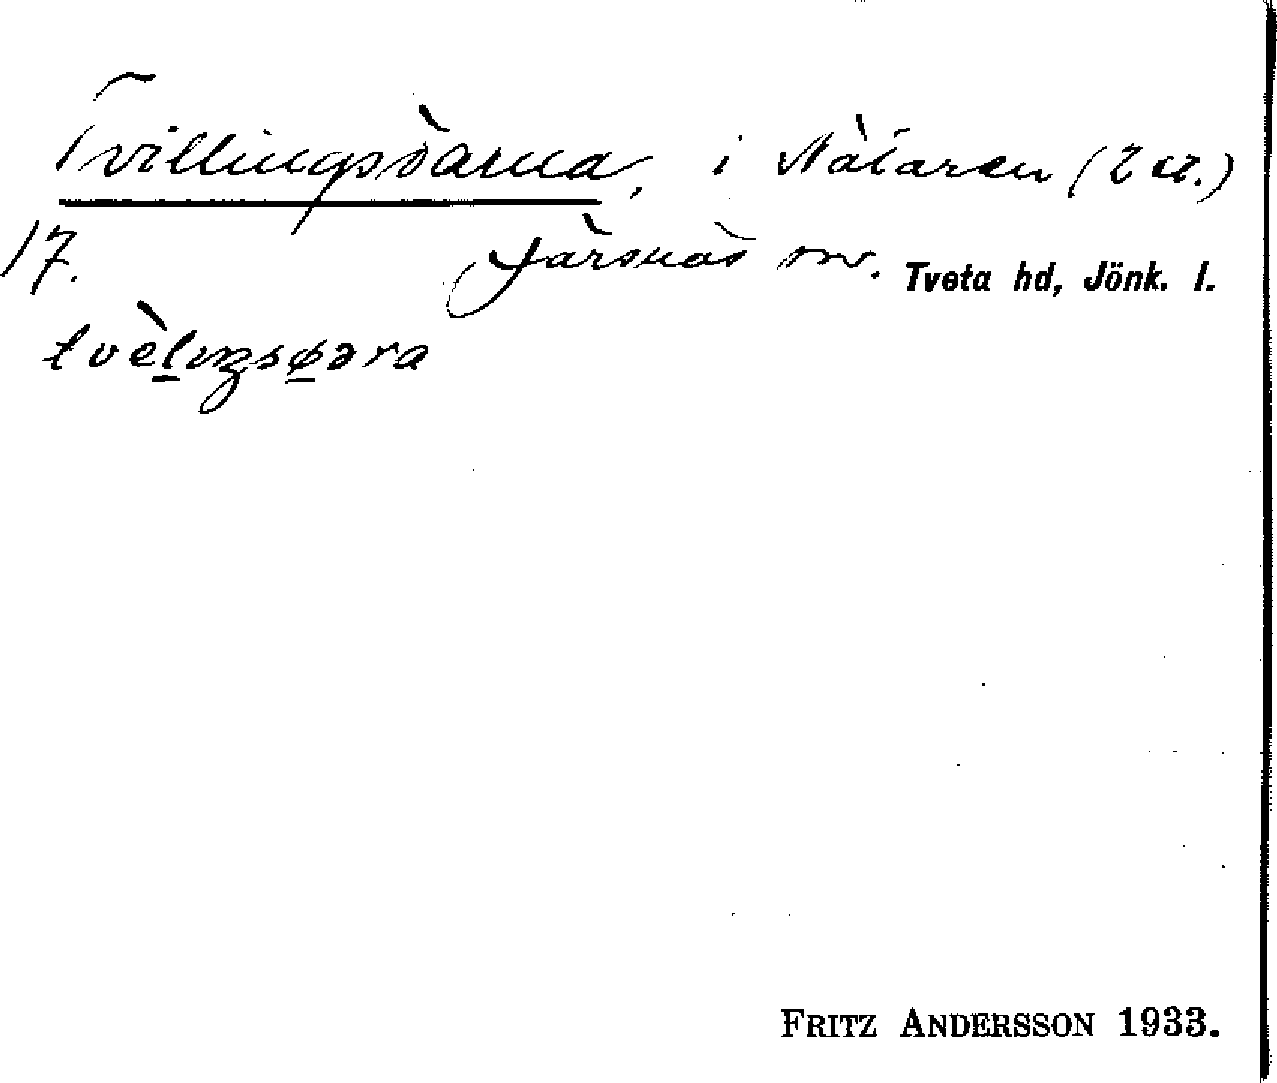 Tvillingsöarna, i Nätaren (2 st.)
17. Järsnäs sn. Tveta hd, Jönk. l.
tvèlıŋsøəra
FRITZ ANDERSSON 1933.